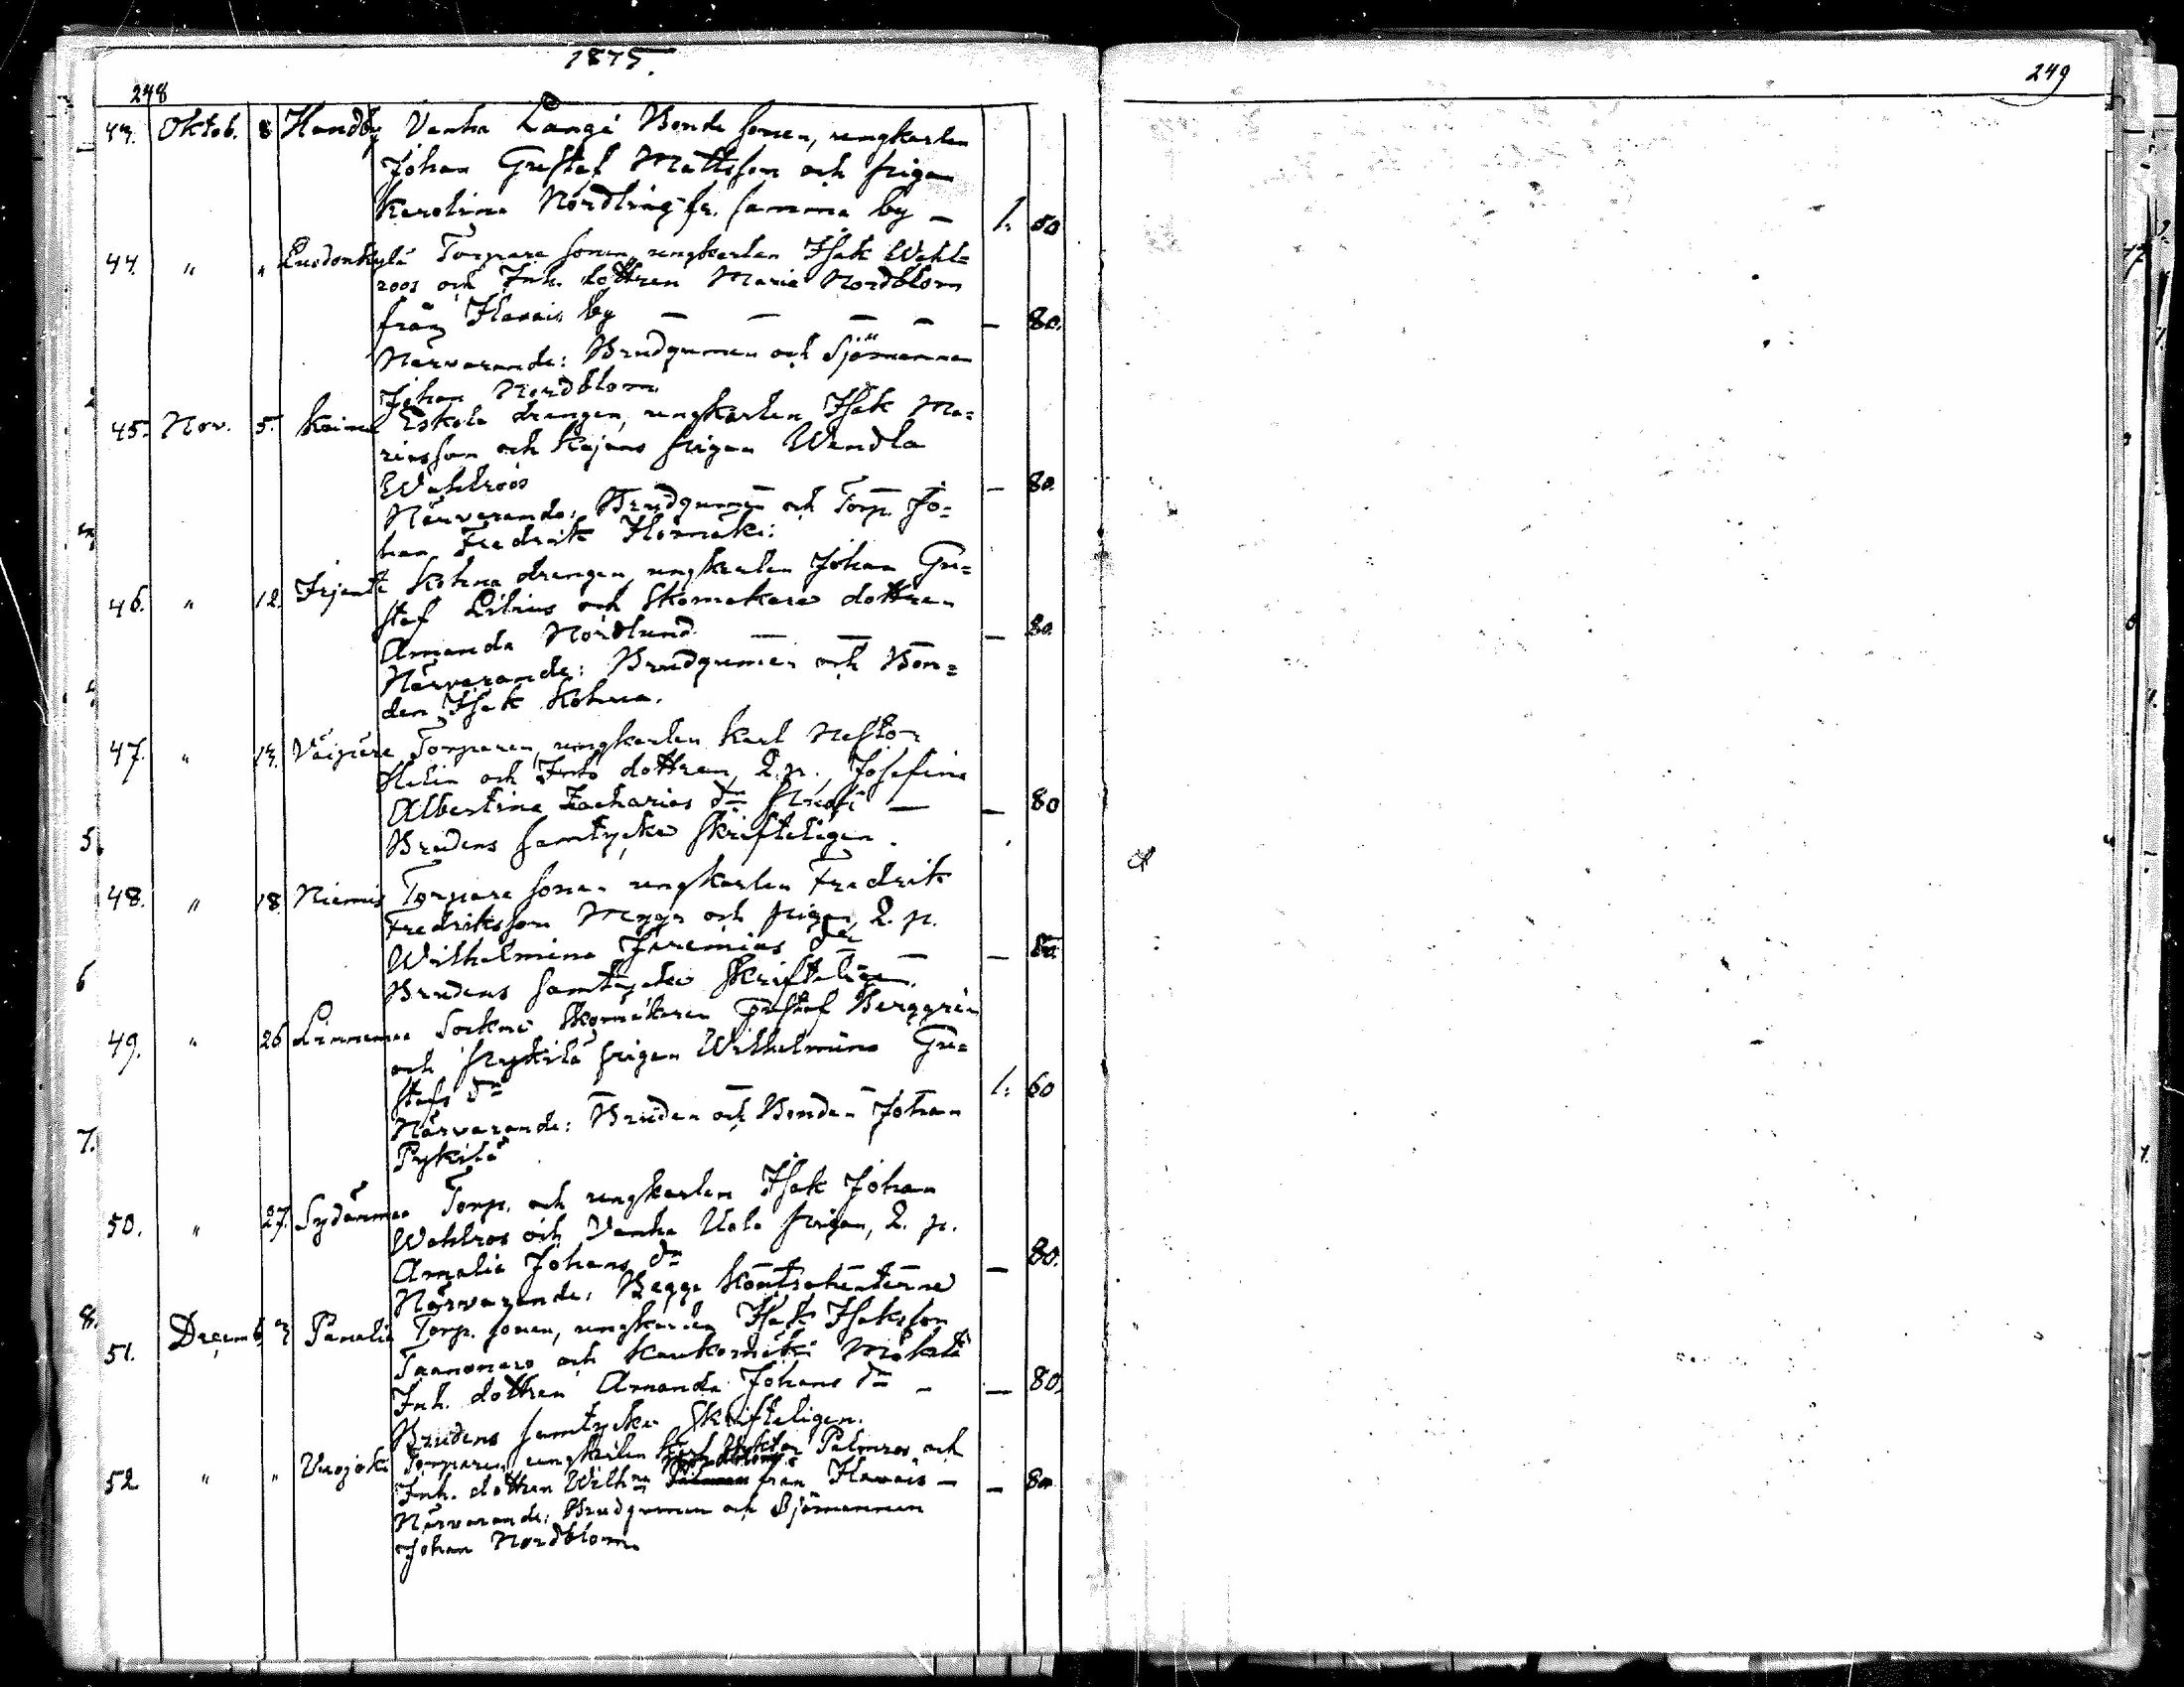 1875.
248
249
43. Oktob. 8 Handby Vanha Längi Bonde sonen, ungkarlen
Johan Gustaf Mattsson och pigan
Karolina Nordling fr. samma by — 1. 50
44. " " Euonkylä Torpare sonen, ungkarlen Isak Wahl=
roos och Inh. dottren Maria Nordblom
från Hanais by — — — — — 80.
Närvarande: Brudgumen och Sjömannen
Johan Nordblom
45. Nov. 5. Eskola drengen, ungkarlen Isak Ma=
riasson och Kajans pigan Wendla
Wahlroos — 80.
Närvarande: Brudgumen och Torp. Jo=
han Fredrik
46. " 12. Irjante Kohna drengen, ungkarlen Johan Gu=
staf Lilius och Skomakare dottren
Amanda Nordlund — — — 80.
Närvarande: Brudgumen och Bon=
den Isak Kohna.
47. " 13. Väipäre Torparen, ungkarlen Karl Nestor
Helin och Inhs dottren, Q. p., Josefina
Albertina Zacharias dr — — 80
Brudens samtycke skrifteligen.
48. " 18. Niemis Torpare sonen ungkarlen Fredrik
Fredriksson Mygga och pigan, Q. p.
Wilhelmina Jeremias dr — — 80.
Brudens samtycke skrifteligen.
49. " 26 Linnamaa Sockne Skomakaren Gustaf Berggrén
och Pykilä pigan Wilhelmina Gu=
stafs dr 1. 60
Närvarande: Bruden och Bonden Johan
Pykilä
50. " 27. Sydänmaa Torp. och ungkarlen Isak Johan
Wahlros och Vanha Uola pigan, Q. p.
Amalia Johans dr — 80.
Närvarande: Begge Kontrahenterne
51. Decemb. 3 Panelia Torp. sonen, ungkarlen Isak Isaksson
och Kaukomäki
Inh. dottren Amanda Johans dr — — 80.
Brudens samtycke skrifteligen.
52 " " Vuojoki Torparen, ungkarlen Karl Viktor Palmros och
Inh. dottren Wilhna Nordblom från Hanais — — 80
Närvarande: Brudgumen och Sjömannen
Johan Nordblom.